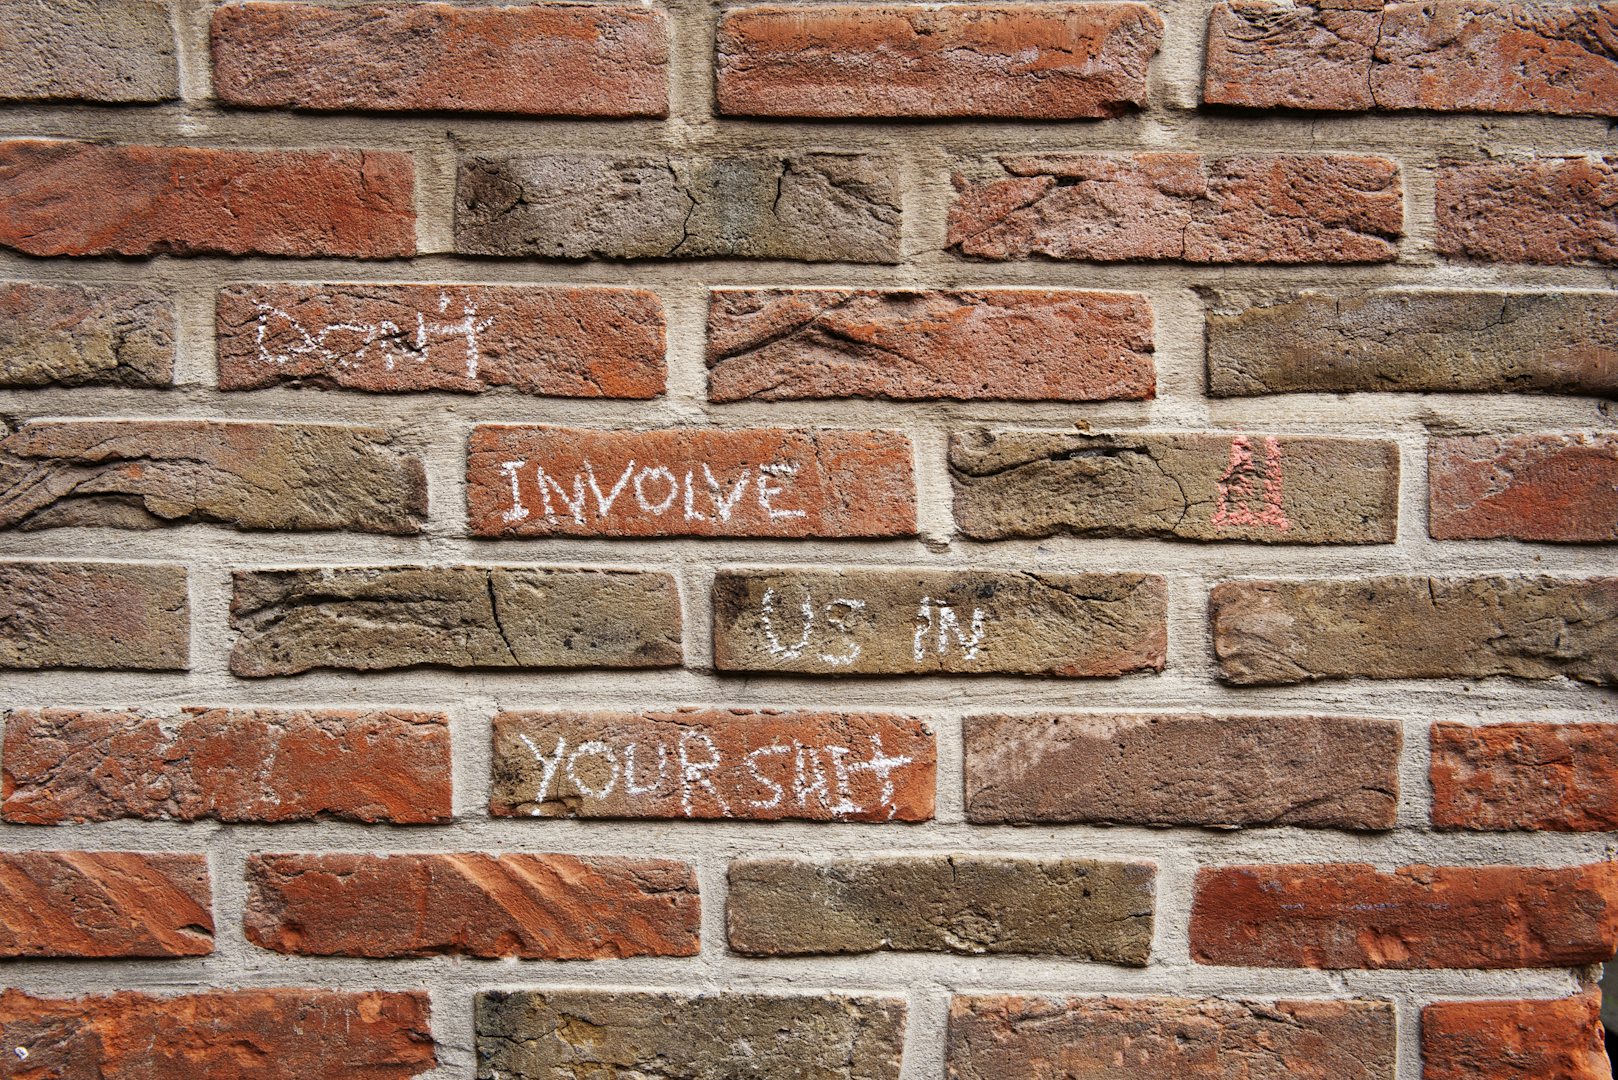 DON'T
INVOLVE
US IN
YOUR SHIT